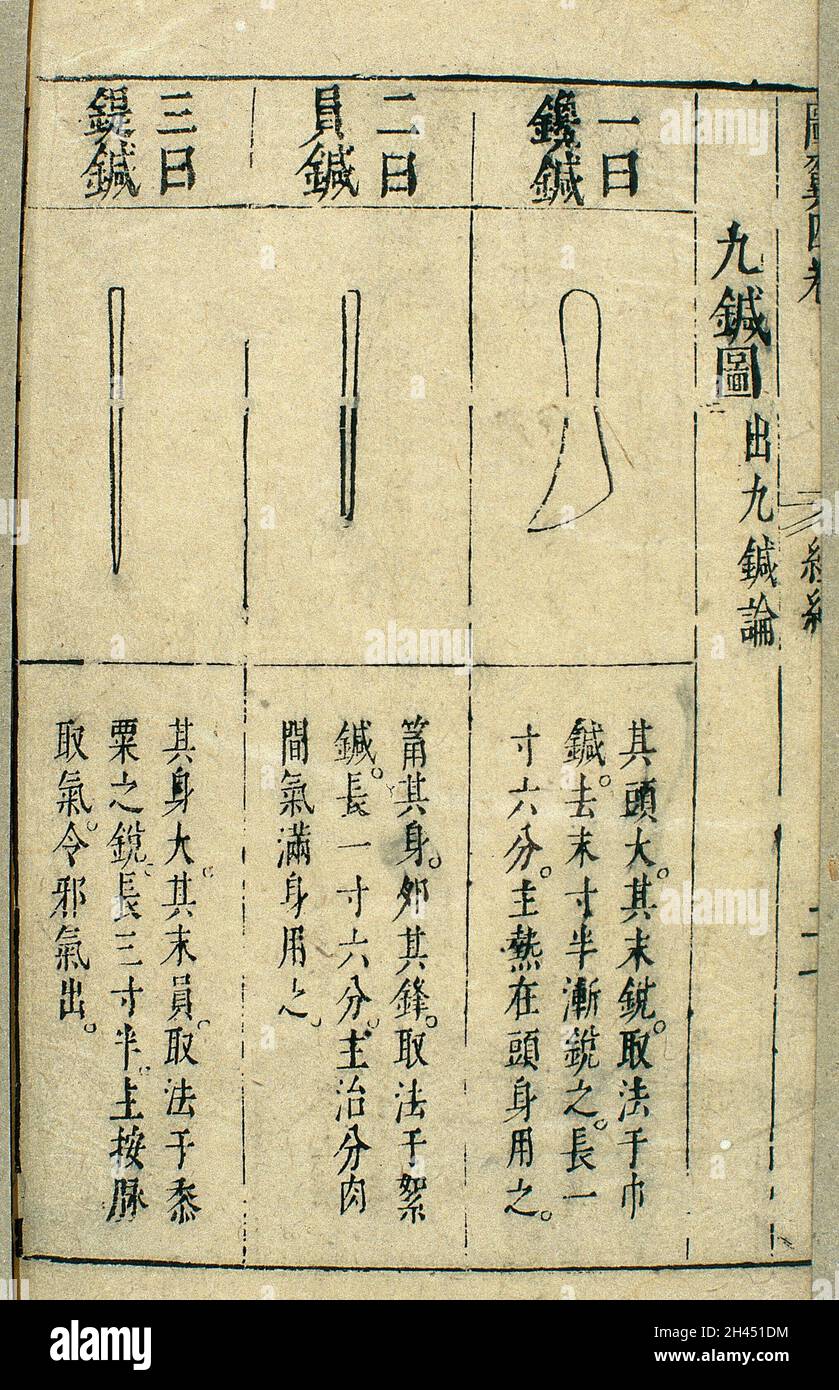 圖翼四卷
經絡
九鍼圖 出九鍼論
一曰
鑱鍼
其頭大。其末銳。取法于巾
鍼。去末寸半漸銳之。長一
寸六分。主熱在頭身用之。
二曰
員鍼
筩其身。卵其鋒。取法于絮
鍼。長一寸六分。主治分肉
間氣滿身用之。
三曰
鍉鍼
其身大。其末員。取法于黍
粟之銳。長三寸半。主按脈
取氣。令邪氣出。
alamy
alamy
Image ID: 2H451DM
www.alamy.com